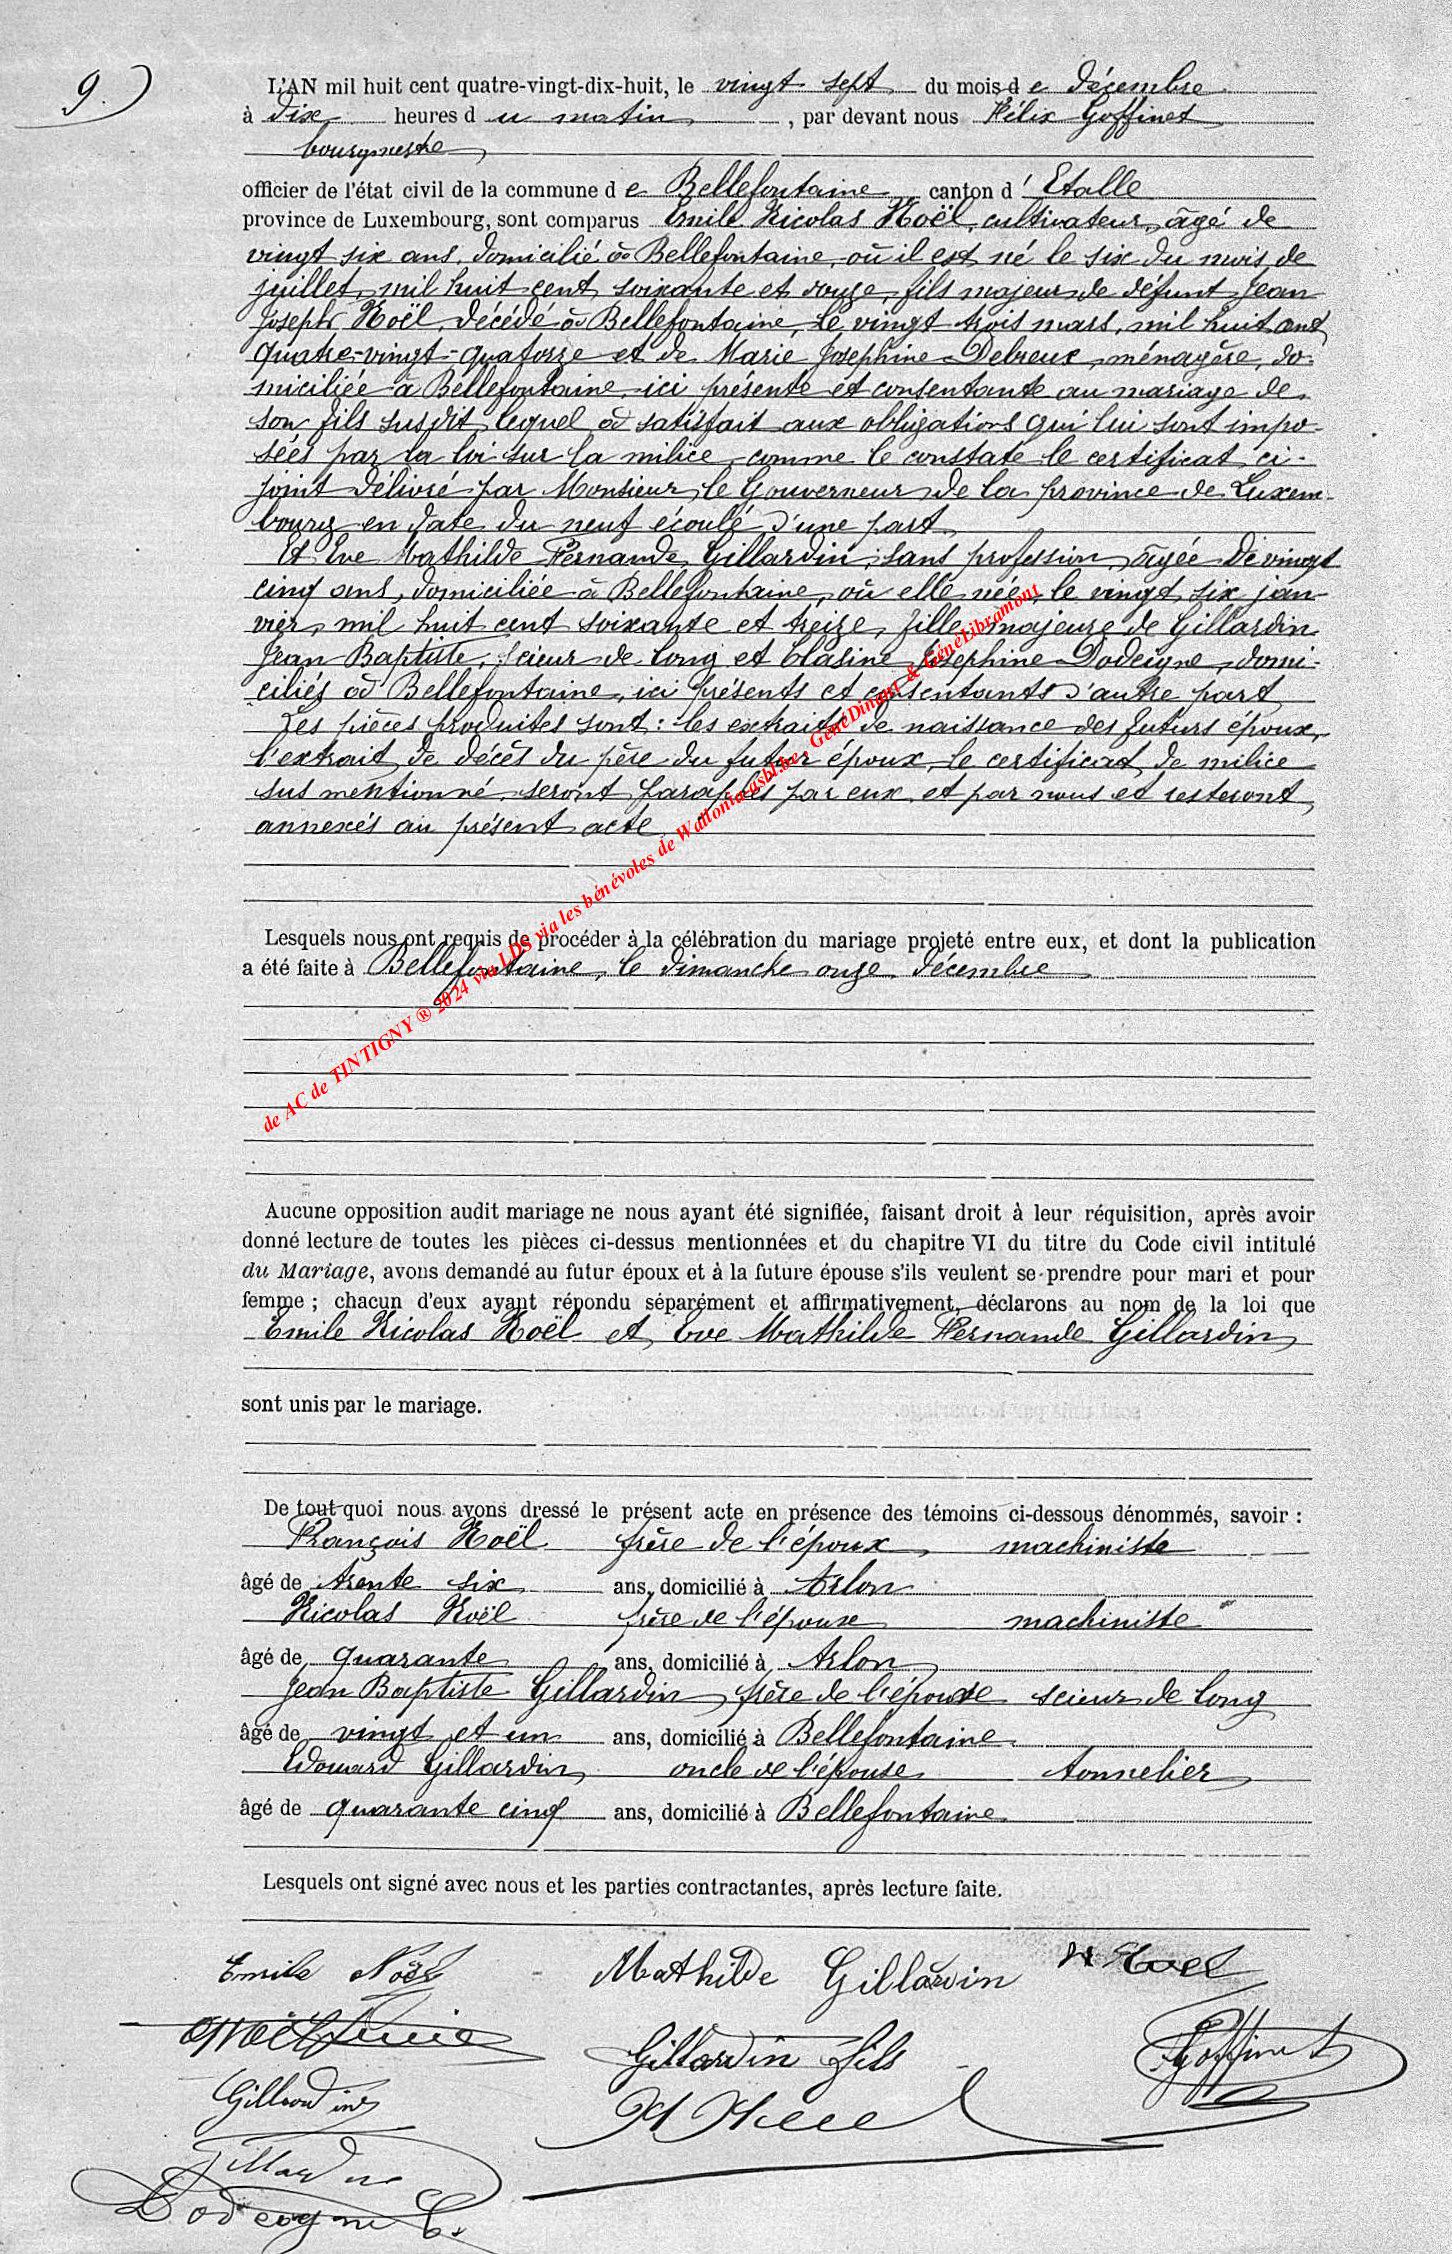 9.)
L'AN mil huit cent quatre-vingt-dix-huit, le vingt sept du mois de décembre
à dix heures du matin, par devant nous Félix Goffinet
bourgmestre,
officier de l'état civil de la commune de Bellefontaine canton d'Etalle
province de Luxembourg, sont comparus Emile Nicolas Noël, cultivateur, âgé de
vingt six ans, domicilié à Bellefontaine, où il est né le six du mois de
juillet, mil huit cent soixante et douze, fils majeur de défunt Jean
Joseph Noël, décédé à Bellefontaine, le vingt trois mars, mil huit cent
quatre-vingt-quatorze et de Marie Josephine Debreux, ménagère, do-
miciliée à Bellefontaine, ici présente et consentante au mariage de
son fils susdit, lequel a satisfait aux obligations qui lui sont impo-
sées par la loi sur la milice, comme le constate le certificat ci-
joint délivré par Monsieur le Gouverneur de la province de Luxem-
bourg en date du neuf écoulé d'une part
Et Eve Mathilde Fernande Gillardin, sans profession, âgée de vingt
cinq ans, domiciliée à Bellefontaine, où elle née, le vingt six jan-
vier, mil huit cent soixante et treize, fille majeure de Gillardin
Jean Baptiste, scieur de long et Blasine Josephine Dodeigne, domi-
ciliés à Bellefontaine, ici présents et consentants d'autre part
Les pièces produites sont : les extraits de naissance des futurs époux,
l'extrait de décès du père du futur époux, le certificat de milice
sus mentionné, seront paraphés par eux et par nous et resteront
annexés au présent acte.
Lesquels nous ont requis de procéder à la célébration du mariage projeté entre eux, et dont la publication
a été faite à Bellefontaine, le dimanche onze décembre
de AC de TINTIGNY ® 2024 via LDS via les bénévoles de Walloniaasbl.be, GénéDinant & GénéLibramont
Aucune opposition audit mariage ne nous ayant été signifiée, faisant droit à leur réquisition, après avoir
donné lecture de toutes les pièces ci-dessus mentionnées et du chapitre VI du titre du Code civil intitulé
du Mariage, avons demandé au futur époux et à la future épouse s'ils veulent se prendre pour mari et pour
femme ; chacun d'eux ayant répondu séparément et affirmativement, déclarons au nom de la loi que
Emile Nicolas Noël et Eve Mathilde Fernande Gillardin
sont unis par le mariage.
De tout quoi nous avons dressé le présent acte en présence des témoins ci-dessous dénommés, savoir :
François Noël frère de l'époux, machiniste
âgé de trente six ans, domicilié à Arlon
Nicolas Noël frère de l'époux machiniste
âgé de quarante ans, domicilié à Arlon
Jean Baptiste Gillardin, frère de l'épouse scieur de long
âgé de vingt et un ans, domicilié à Bellefontaine
Edouard Gillardin, oncle de l'épouse tonnelier
âgé de quarante cinq ans, domicilié à Bellefontaine
Lesquels ont signé avec nous et les parties contractantes, après lecture faite.
Emile Noël Mathilde Gillardin N Noel
Gillardin fils Goffinet
Gillardin
Gillardin
Dodeigne B.